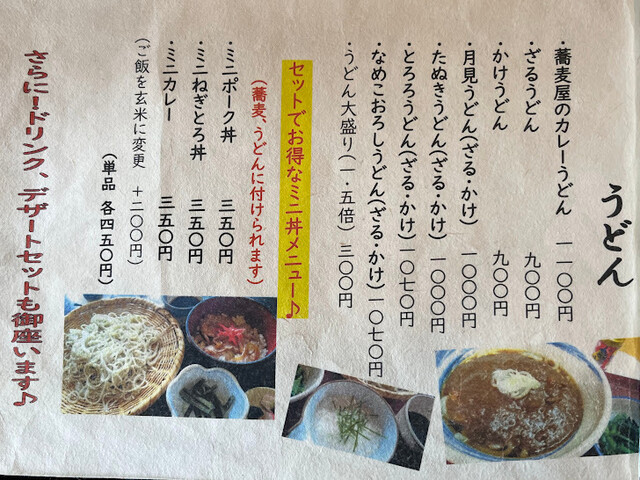 うどん
・蕎麦屋のカレーうどん 一一〇〇円
・ざるうどん 九〇〇円
・かけうどん 九〇〇円
・月見うどん(ざる・かけ) 一〇〇〇円
・たぬきうどん(ざる・かけ) 一〇〇〇円
・とろろうどん(ざる・かけ) 一〇七〇円
・なめこおろしうどん(ざる・かけ) 一〇七〇円
・うどん大盛り(一・五倍) 三〇〇円
セットでお得なミニ丼メニュー♪
(蕎麦、うどんに付けられます)
・ミニポーク丼 三五〇円
・ミニねぎとろ丼 三五〇円
・ミニカレー 三五〇円
(ご飯を玄米に変更 +二〇〇円)
(単品 各四五〇円)
さらに!ドリンク、デザートセットも御座います♪